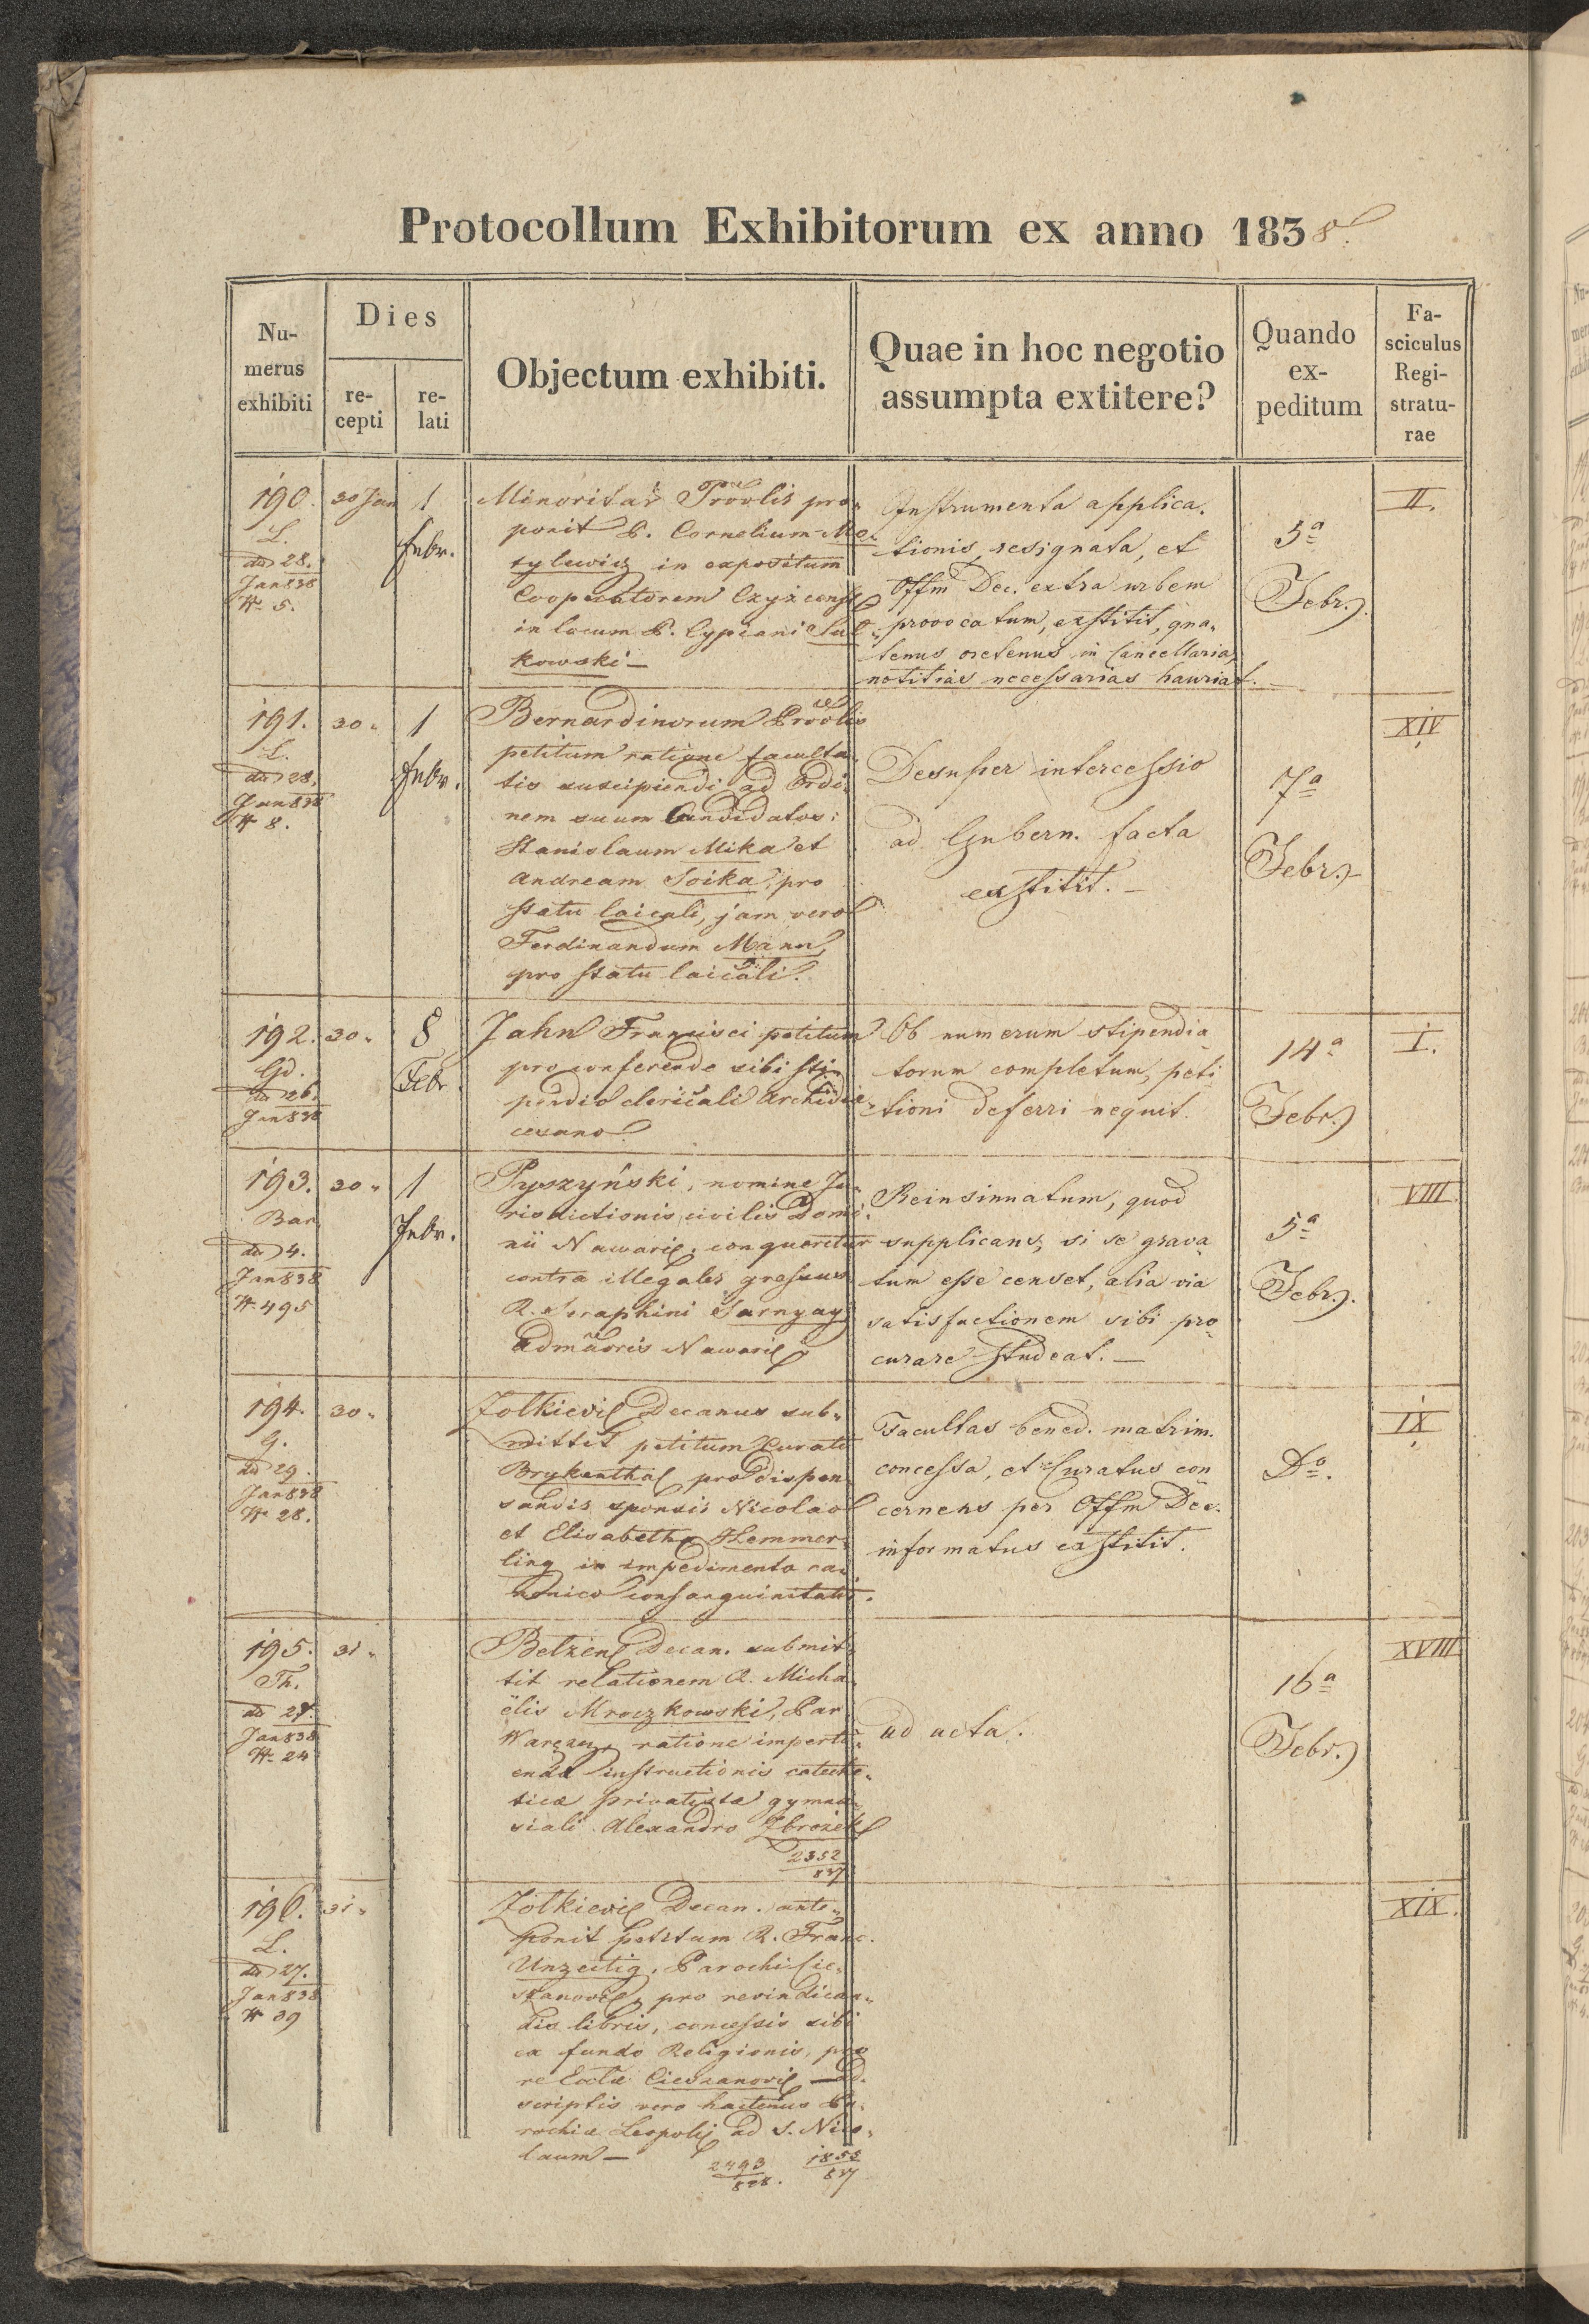 Protocollum Exhibitorum ex anno 1838.
Nu-
merus
exhibiti
Dies
re-
cepti
re-
lati
Objectum exhibiti.
Quae in hoc negotio
assumpta extitere?
Quando
ex-
peditum
Fa-
sciculus
Regi-
stratu-
rae
190.
L.
dto 28.
Jan 838
N. 5.
30 Jan
1
Febr.
Minoritar Provlis pro-
ponit P. Cornelium Me-
tylewicz in expositum
Cooperatorem
in locum P. Cypriani Sul-
kowski —
Instrumenta applica-
tionis, resignata, et
Offm Dec. extra urbem
provocatum, exstitit, qua-
tenus oretenus in Cancellaria,
notitias necessarias hauriat. —
5a
Febr.
II.
191.
L.
dto 28.
Jan 838
N 8.
30 "
1
Febr.
Bernardinorum Provlis
petitum ratione faculta-
tis suscipiendi ad Ordi-
nem suum Candidatos:
Stanislaum Mika et
Andream Soika, pro
statu laicali, jam vero
Ferdinandum Mann,
pro statu laicali.
Desuper intercessio
ad Gubern. facta
exstitit. —
7a
Febr. —
XIV
192.
Gd.
dto 26.
Jan 838
30 "
8
Febr.
Jahn Francisci petitum
pro conferendo sibi sti-
pendio clericali Archidio-
cesano.
Ob numerum stipendia-
torum completum, peti-
tioni deferri nequit.
14a
Febr.
I.
193.
Bar.
dto 4.
Jan 838
N. 495
30 "
1
Febr.
Pyszyński, nomine Ju-
risdictionis civilis Domi-
nii Nawarie, conqueritur
contra illegales gressus
R. Seraphini Sarnyay
Admâoris Nawarie
Reinsinnatum, quod
supplicans, si se grava-
tum esse censet, alia via
satisfactionem sibi pro-
curare studeat. —
5a
Febr.
VIII.
194.
G.
dto 29.
Jan 838
N 28.
30 "
Zolkievie Decanus sub-
mittit petitum Curati
Brykenthal pro dispen-
sandis sponsis Nicolao
et Elisabetha Hemmer-
ling in impedimento ca-
nonico consanguinitatis.
Facultas bened. matrim.
concessa, et Curatus con-
cernens per Offm Dec.
informatus exstitit.
Do.
IX
195.
Th.
dto 27.
Jan 838
N. 24
31 "
Belzen Decan. submit-
tit relationem R. Micha-
ëlis Mroczkowski, Par
ratione imperti-
endæ instructionis cateche-
ticæ privatistæ gymna-
siali Alexandro Zbrożek
2352
837
ad acta.
16a
Febr.
XVIII
196.
L.
dto 27.
Jan 838
N 39
31 "
Zolkievie Decan. ante-
ponit petitum R. Franc.
Unzeitig, Parochi Cie-
szanovie, pro revindican-
dis libris, concessis sibi
ex fundo Religionis, pro
re Eccltæ Cieszanovie — ad-
scriptis vero hactenus Pa-
rochiæ Leopoli ad S. Nico-
laum —
2493
828.
1855
837
XIX.